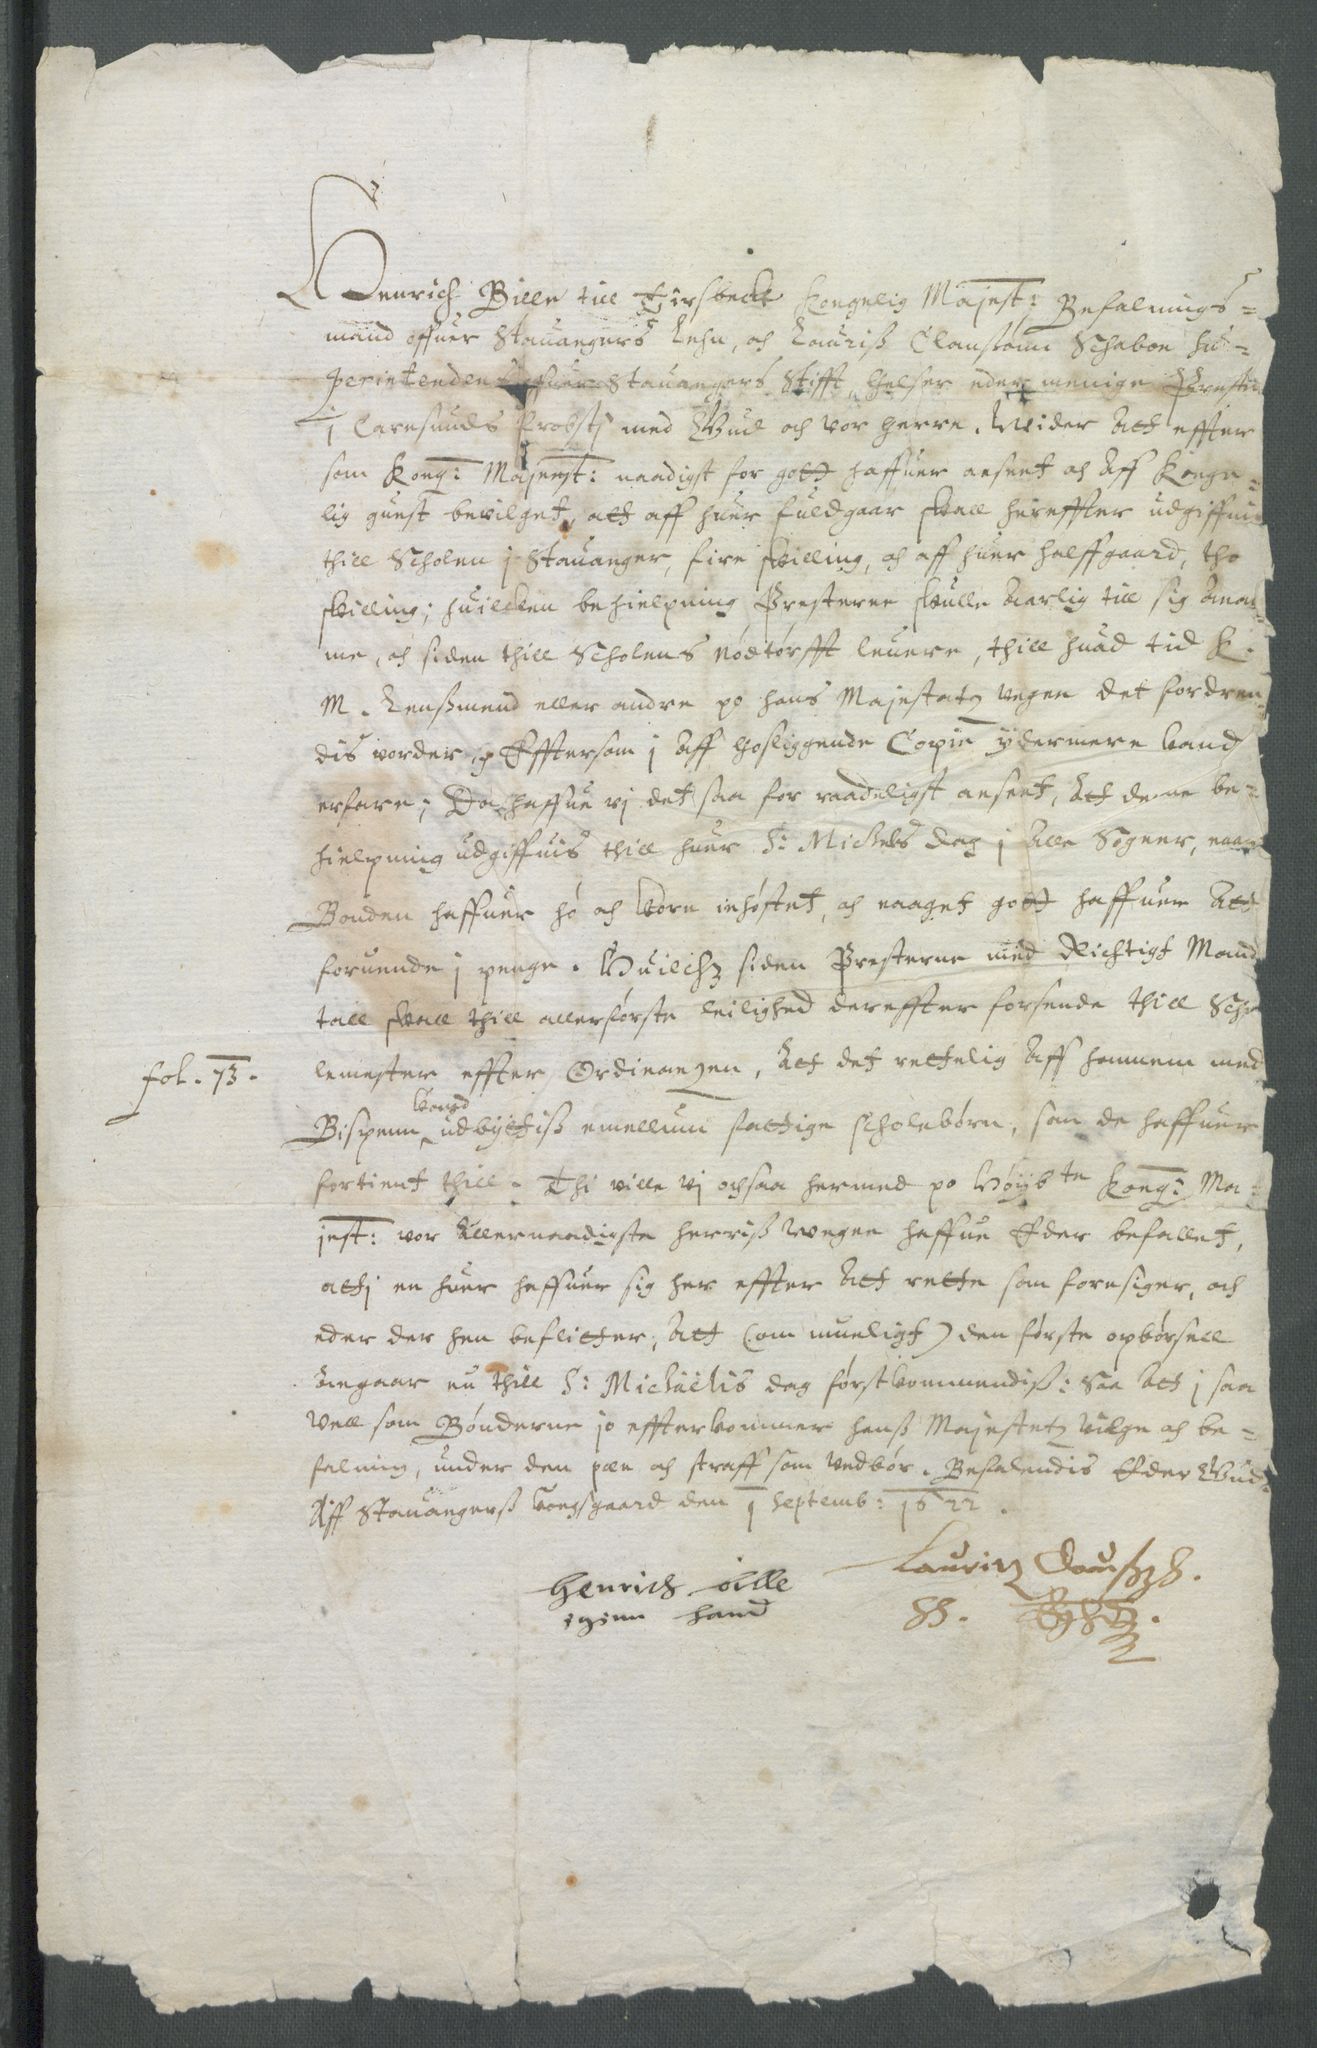 Henrich Bille till Tirsbeck Kongelig Majest: Befalnings=
mand offuer Stauangers Lehn, och Lauriss Claussønn Schabou Su=
perintendent offuer Stauangers Stifft, helser eder menige Prester
i Caresunds Probstj med Gud och vor herre. Wider Att effter
som Kong: Majest: naadigst for gott haffuer anseet och Aff Konge=
lig gunst bevilget, att aff huer fuldgaar skall hereffter udgiffuis
thill Scholen j Stauanger, fire skilling, och aff huer halffgaard, tho
skilling; huilcken behielpning Presterne skulle Aarlig till sig Anam=
me, och siden thill Scholens nødtørfft leuere, thill huad tid K.
M. Lenssmend eller andre po hans Majestatz vegen det fordren=
dis vorder, Efftersom j Aff hosliggende Copie ydermere kand
erfare; Da haffue vj det saa for raadeligst anseet, Att denne be=
hielpning udgiffuis thill huer S: Mickels dag j Alle Sogner, naar
Bonden haffuer hø och korn inhøstet, och naaget gott haffuer Att
foruende j penge. Huilchet siden Presterne med Richtigt Mand
tall skall thill allerførste leilighed dereffter forsende thill Scho
lemester effter Ordinanzen, Att det rettelig Aff hannem med
fol. 73.
Bispenn kand udbyttiss emellum fattige scholebørn, som de haffuer
fortient thill. Thi ville vj ochsaa hermed po Høyb te Kong: Ma=
jest: vor Allernaadigste herriss wegne haffue Eder befallet,
attj en huer haffuer sig her effter Att rette som foresiger, och
eder der hen beflitter, Att (om mueligt) den første opbørsell
Angaar nu thill S: Michaelis dag førstkommendiss: Saa Att j saa
vell som Bønderne jo effterkommer hanss Majestetz vilge och be=
falning, under den pæn och straff som vedbør. Befalendis Eder Gud.
Aff Stauangerss kongsgaard den 1 Septemb: 1622.
Henrich Bille
egenn hand
Lauritz Clausszh.
SS.